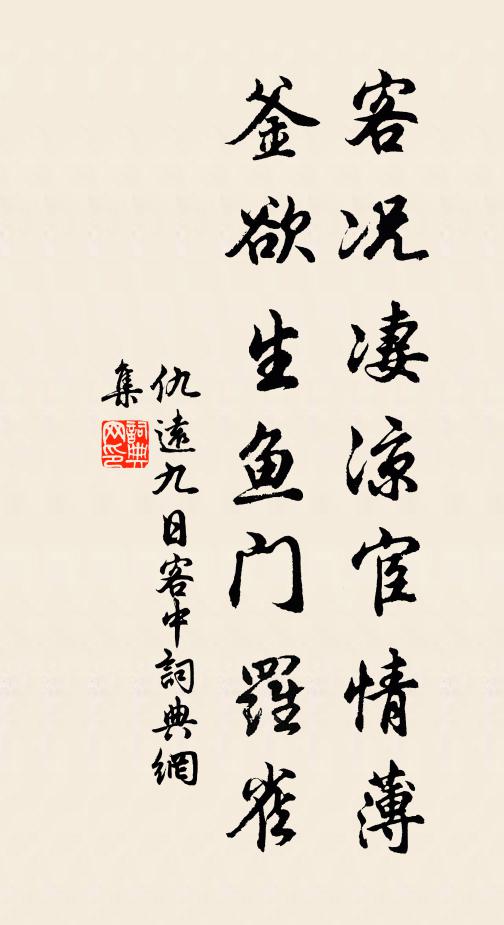 客况凄凉宦情薄
釜欲生鱼门羅雀
仇遠九日客中詞典網
集
詞典
网印